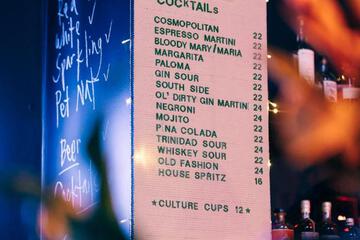 Red
white
Sparkling ✓
Pet Nat ✓
Beer
Cocktails
COCKTAILS
COSMOPOLITAN 22
ESPRESSO MARTINI 22
BLOODY MARY/MARIA 22
MARGARITA 22
PALOMA 22
GIN SOUR 22
SOUTH SIDE 22
OL' DIRTY GIN MARTINI 24
NEGRONI 24
MOJITO 22
P:NA COLADA 22
TRINIDAD SOUR 22
WHISKEY SOUR 22
OLD FASHION 24
HOUSE SPRITZ 16
*CULTURE CUPS 12*